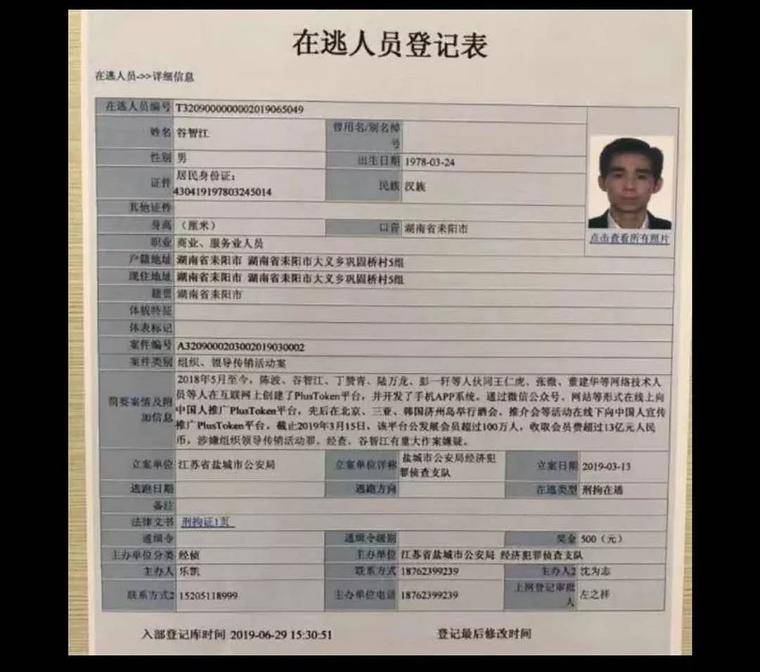 在逃人员登记表
在逃人员->>详细信息
在逃人员编号 T3209000000002019065049
姓名 谷智江 曾用名/别名绰号
性别 男 出生日期 1978-03-24
证件 居民身份证: 430419197803245014 民族 汉族
其他证件
身高 (厘米) 口音 湖南省耒阳市
点击查看所有照片
职业 商业、服务业人员
户籍地址 湖南省耒阳市 湖南省耒阳市大义乡巩固桥村5组
现住地址 湖南省耒阳市 湖南省耒阳市大义乡巩固桥村5组
籍贯 湖南省耒阳市
体貌特征
体表标记
案件编号 A3209000203002019030002
案件类别 组织、领导传销活动案
简要案情及附加信息
2018年5月至今,陈波、谷智江、丁赞青、陆万龙、彭一轩等人伙同王仁虎、张微、董建华等网络技术人
员等人在互联网上创建了PlusToken平台,并开发了手机APP系统。通过微信公众号、网站等形式在线上向
中国人推广PlusToken平台,先后在北京、三亚、韩国济州岛举行酒会、推介会等活动在线下向中国人宣传
推广PlusToken平台。截止2019年3月15日,该平台公发展会员超过100万人,收取会员费超过13亿元人民
币,涉嫌组织领导传销活动罪。经查,谷智江有重大作案嫌疑。
立案单位 江苏省盐城市公安局 立案单位详称 盐城市公安局经济犯罪侦查支队 立案日期 2019-03-13
逃跑日期 逃跑方向 在逃类型 刑拘在逃
备注
法律文书 刑拘证1页
通缉令 通缉令级别 奖金 500(元)
主办单位分类 经侦 主办单位 江苏省盐城市公安局 经济犯罪侦查支队
主办人 乐凯 联系方式 18762399239 主办人2 沈为志
联系方式2 15205118999 主办单位电话 18762399239 上网登记审批人 左之祥
入部登记库时间 2019-06-29 15:30:51 登记最后修改时间